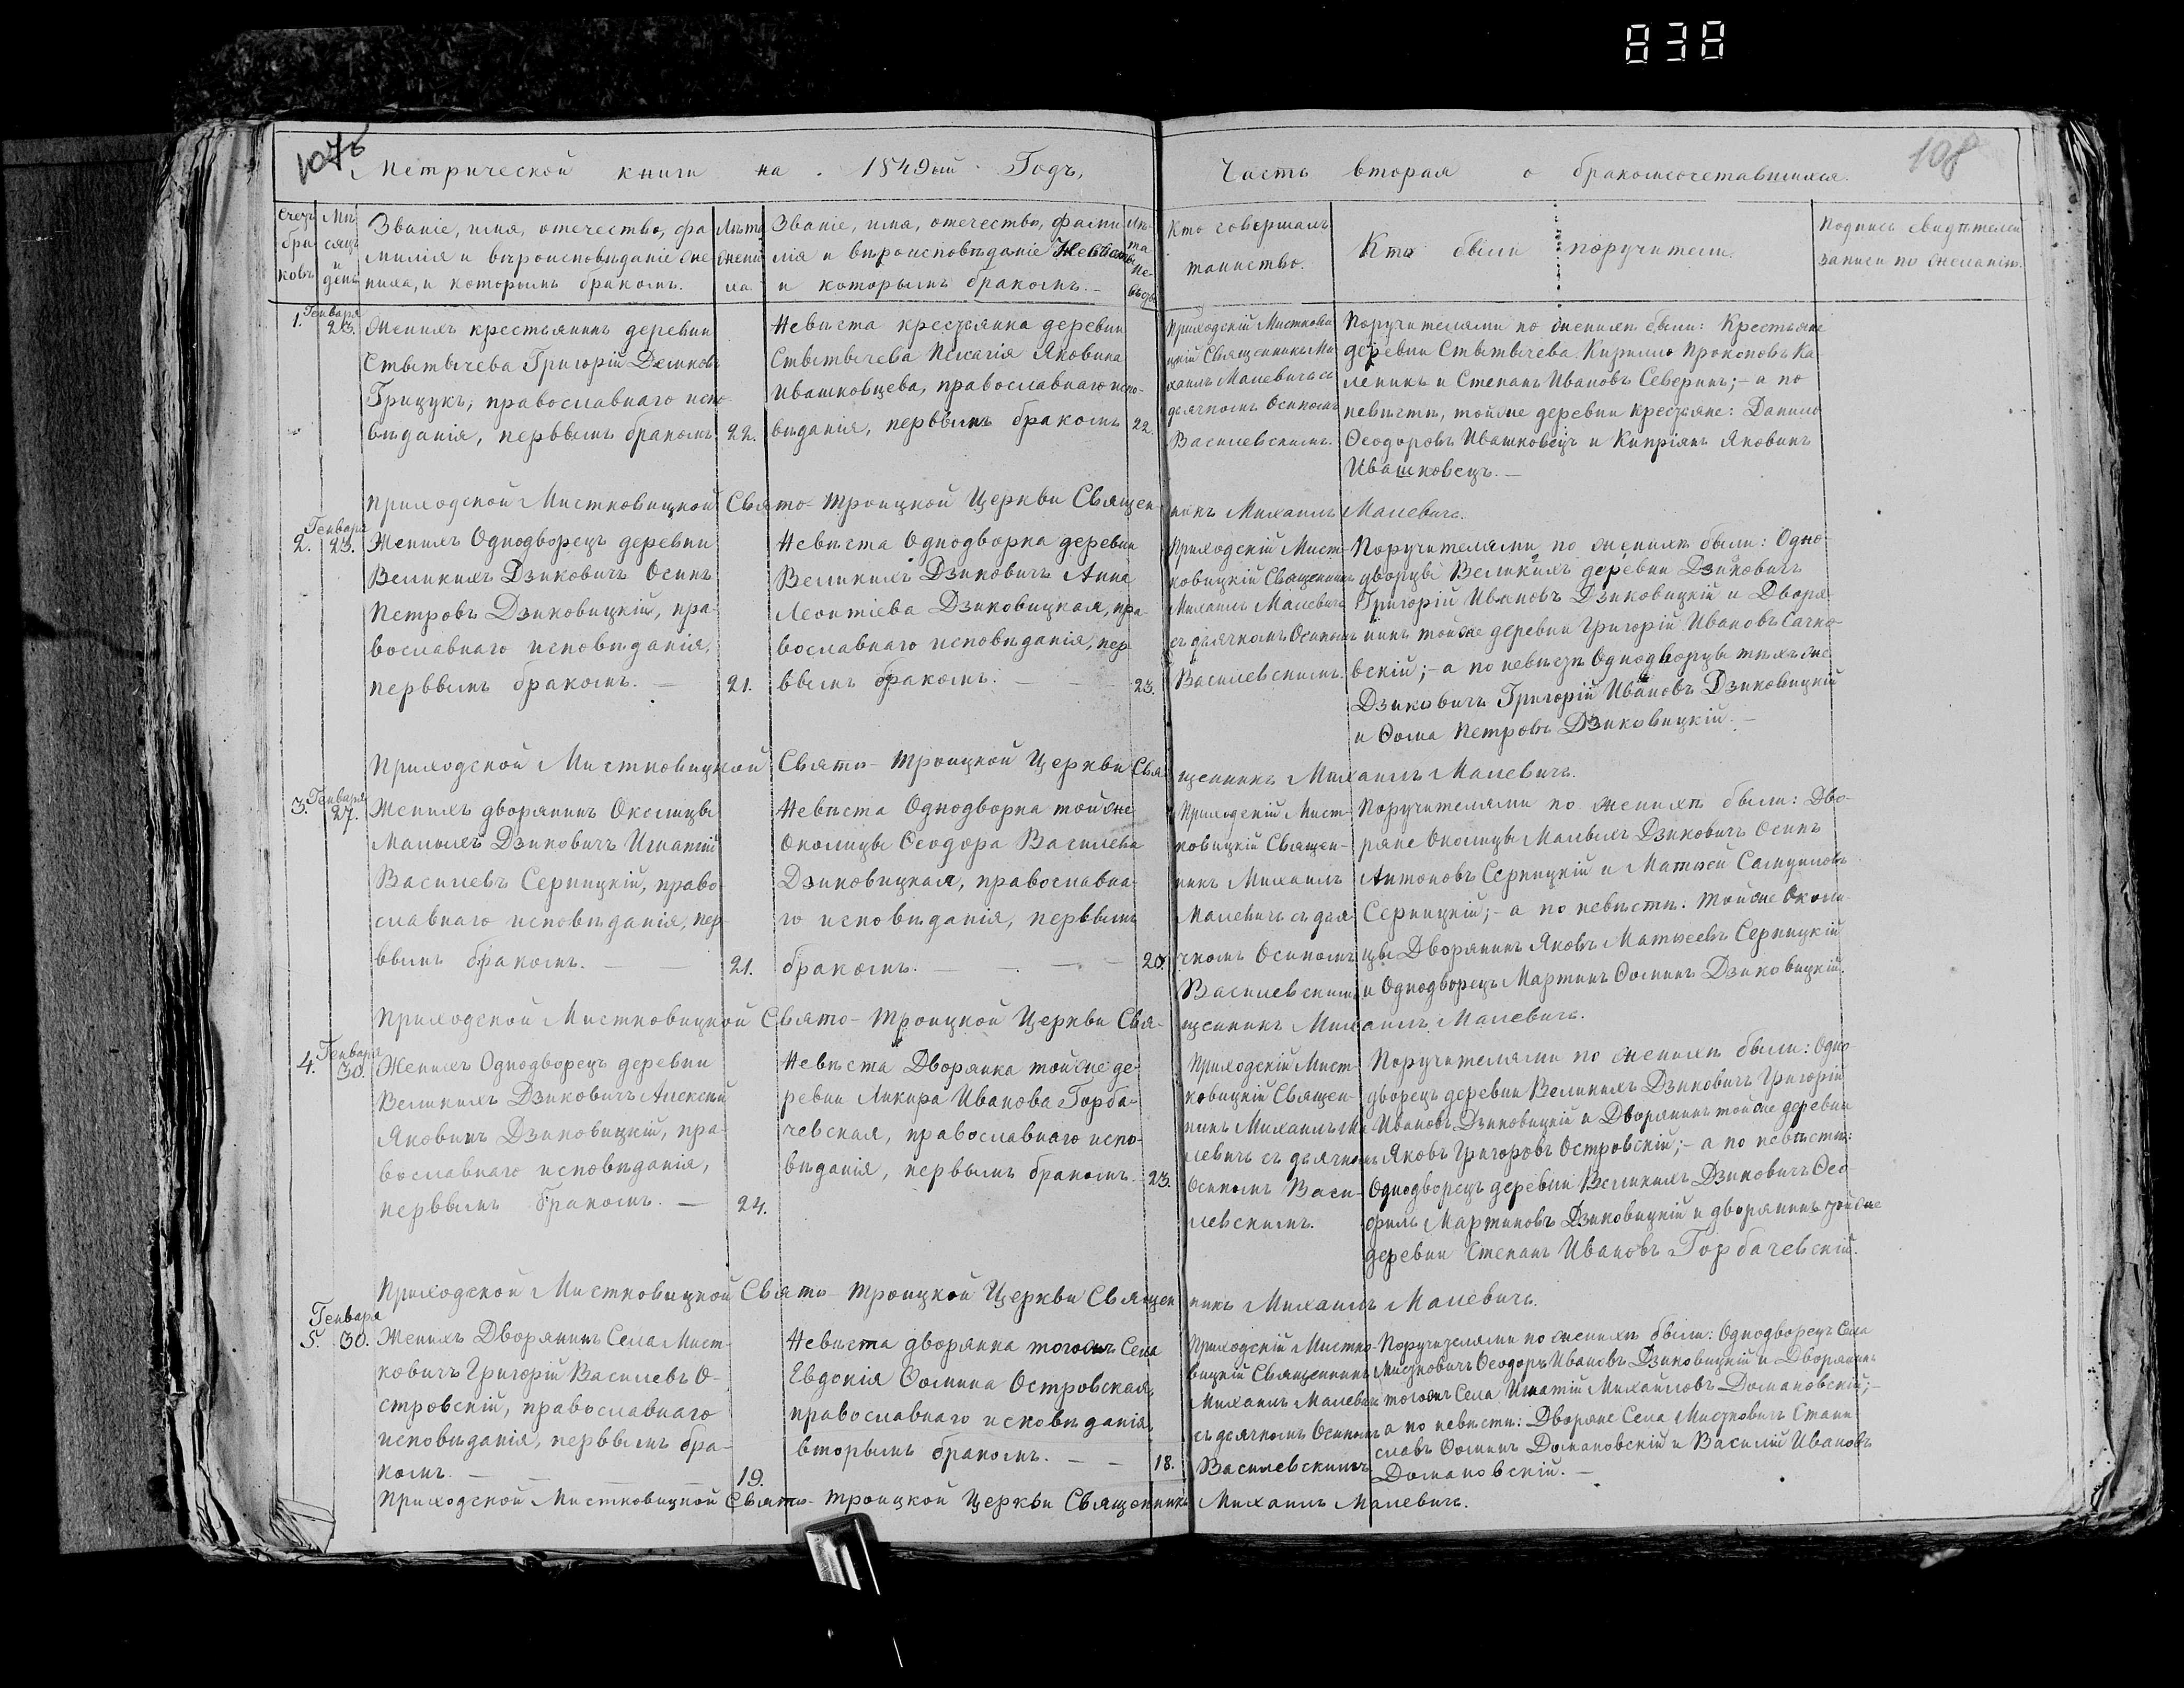 838
107б
108
Метрической книги на 1849ый Годъ,
Часть вторая о бракомсочетавшихся.
Счетъ браковъ
Мѣсяцъ и день
Званіе, имя, отечество, фа
милія и вѣроисповѣданіе же
ниха, и которымъ бракомъ.
Лѣта жениха
Званіе, имя, отечество, фами
лія и вѣроисповѣданіе Невѣсты
и которымъ бракомъ.
Лѣта невѣсты
Кто совершалъ
таинство.
Кто были поручители.
Подпись свидѣтелей
записи по желанію.
1.
Генваря
23.
Женихъ крестьянинъ деревни
Стытычева Григорій Демковъ
Грицукъ, православнаго испо-
вѣданія, первымъ бракомъ
22.
Невѣста крестьянка деревни
Стытычева Пелагія Яковина
Ивашковцева, православнаго испо-
вѣданія, первымъ бракомъ
22.
Приходскій Мисткови
цкій Священникъ Ми
хаилъ Малевичъ съ
дьячкомъ Осипомъ
Василевскимъ.
Поручителями по женихѣ были: Крестьяне
деревни Стытычева Кирилло Прокоповъ Ка
леникъ и Степанъ Ивановъ Северинъ; – а по
невѣстѣ, тойже деревни крестьяне: Данило
Ѳеодоровъ Ивашковецъ и Кипріянъ Яковинъ
Ивашковецъ. –
Приходской Мистковицкой Свято-Троицкой Церкви Священ
никъ Михаилъ Малевичъ.
2.
Генваря
23.
Женихъ Однодворецъ деревни
Великихъ Дзиковичъ Осипъ
Петровъ Дзиковицкій, пра-
вославнаго исповѣданія,
первымъ бракомъ. –
21.
Невѣста Однодворка деревни
Великихъ Дзиковичъ Анна
Леонтіева Дзиковицкая, пра-
вославнаго исповѣданія, пер
вымъ бракомъ. –
23.
Приходскій Мист
ковицкій Священникъ
Михаилъ Малевичъ
съ дьячкомъ Осипомъ
Василевскимъ.
Поручителями по женихѣ были: Одно-
дворцы Великихъ деревни Дзиковичъ
Григорій Ивановъ Дзиковицкій и Дворя
нинъ тойже деревни Григорій Ивановъ Сачко-
вскій; – а по невѣстѣ Однодворцы тѣхъ же
Дзиковичъ Григорій Ивановъ Дзиковицкій
и Ѳома Петровъ Дзиковицкій. –
Приходской Мистковицкой Свято-Троицкой Церкви Свя
щенникъ Михаилъ Малевичъ.
3.
Генваря
27.
Женихъ дворянинъ Околицы
Малыхъ Дзиковичъ Игнатій
Василевъ Серницкій, право
славнаго исповѣданія, пер
вымъ бракомъ. –
21.
Невѣста Однодворка тойже
Околицы Ѳеодора Василева
Дзиковицкая, православна-
го исповѣданія, первымъ
бракомъ. –
20.
Приходскій Мист-
ковицкій Священ-
никъ Михаилъ
Малевичъ съ дья
чкомъ Осипомъ
Василевскимъ
Поручителями по женихѣ были: Дво-
ряне Околицы Малыхъ Дзиковичъ Осипъ
Антоновъ Серницкій и Матѳей Самуиловъ
Серницкій; – а по невѣстѣ: тойже Околи-
цы Дворянинъ Яковъ Матѳеевъ Серницкій
и Однодворецъ Мартинъ Ѳоминъ Дзиковицкій.
Приходской Мистковицкой Свято-Троицкой Церкви Свя-
щенникъ Михаилъ Малевичъ.
4.
Генваря
30.
Женихъ Однодворецъ деревни
Великихъ Дзиковичъ Алексій
Яковинъ Дзиковицкій, пра-
вославнаго исповѣданія,
первымъ бракомъ. –
24.
Невѣста Дворянка тойже де
ревни Ликира Иванова Горба-
чевская, православнаго испо-
вѣданія, первымъ бракомъ.
23.
Приходскій Мист-
ковицкій Священ-
никъ Михаилъ Ма
левичъ съ дьячкомъ
Осипомъ Васи-
левскимъ.
Поручителями по женихѣ были: Одно
дворецъ деревни Великихъ Дзиковичъ Григорій
Ивановъ Дзиковицкій и Дворянинъ тойже деревни
Яковъ Григоровъ Островскій; – а по невѣстѣ:
Однодворецъ деревни Великихъ Дзиковичъ Ѳео-
филъ Мартиновъ Дзиковицкій и дворянинъ тойже
деревни Степанъ Ивановъ Горбачевскій.
Приходской Мистковицкой Свято-Троицкой Церкви Священ
никъ Михаилъ Малевичъ.
5.
Генваря
30.
Женихъ Дворянинъ Села Мист-
ковичъ Григорій Василевъ О-
стровскій, православнаго
исповѣданія, первымъ бра-
комъ. –
19.
Невѣста дворянка тогожъ Села
Евдокія Ѳомина Островская,
православнаго исповѣданія,
вторымъ бракомъ. –
18.
Приходскій Мистко
вицкій Священникъ
Михаилъ Малевичъ
съ дьячкомъ Осипомъ
Василевскимъ
Поручителями по женихѣ были: Однодворецъ Села
Мистковичъ Ѳеодоръ Ивановъ Дзиковицкій и Дворянинъ
тогожъ Села Игнатій Михайловъ Домановскій; –
а по невѣстѣ: Дворяне Села Мистковичъ Стани
славъ Ѳоминъ Домановскій и Василій Ивановъ
Домановскій. –
Приходской Мистковицкой Свято-Троицкой Церкви Священникъ
Михаилъ Малевичъ.